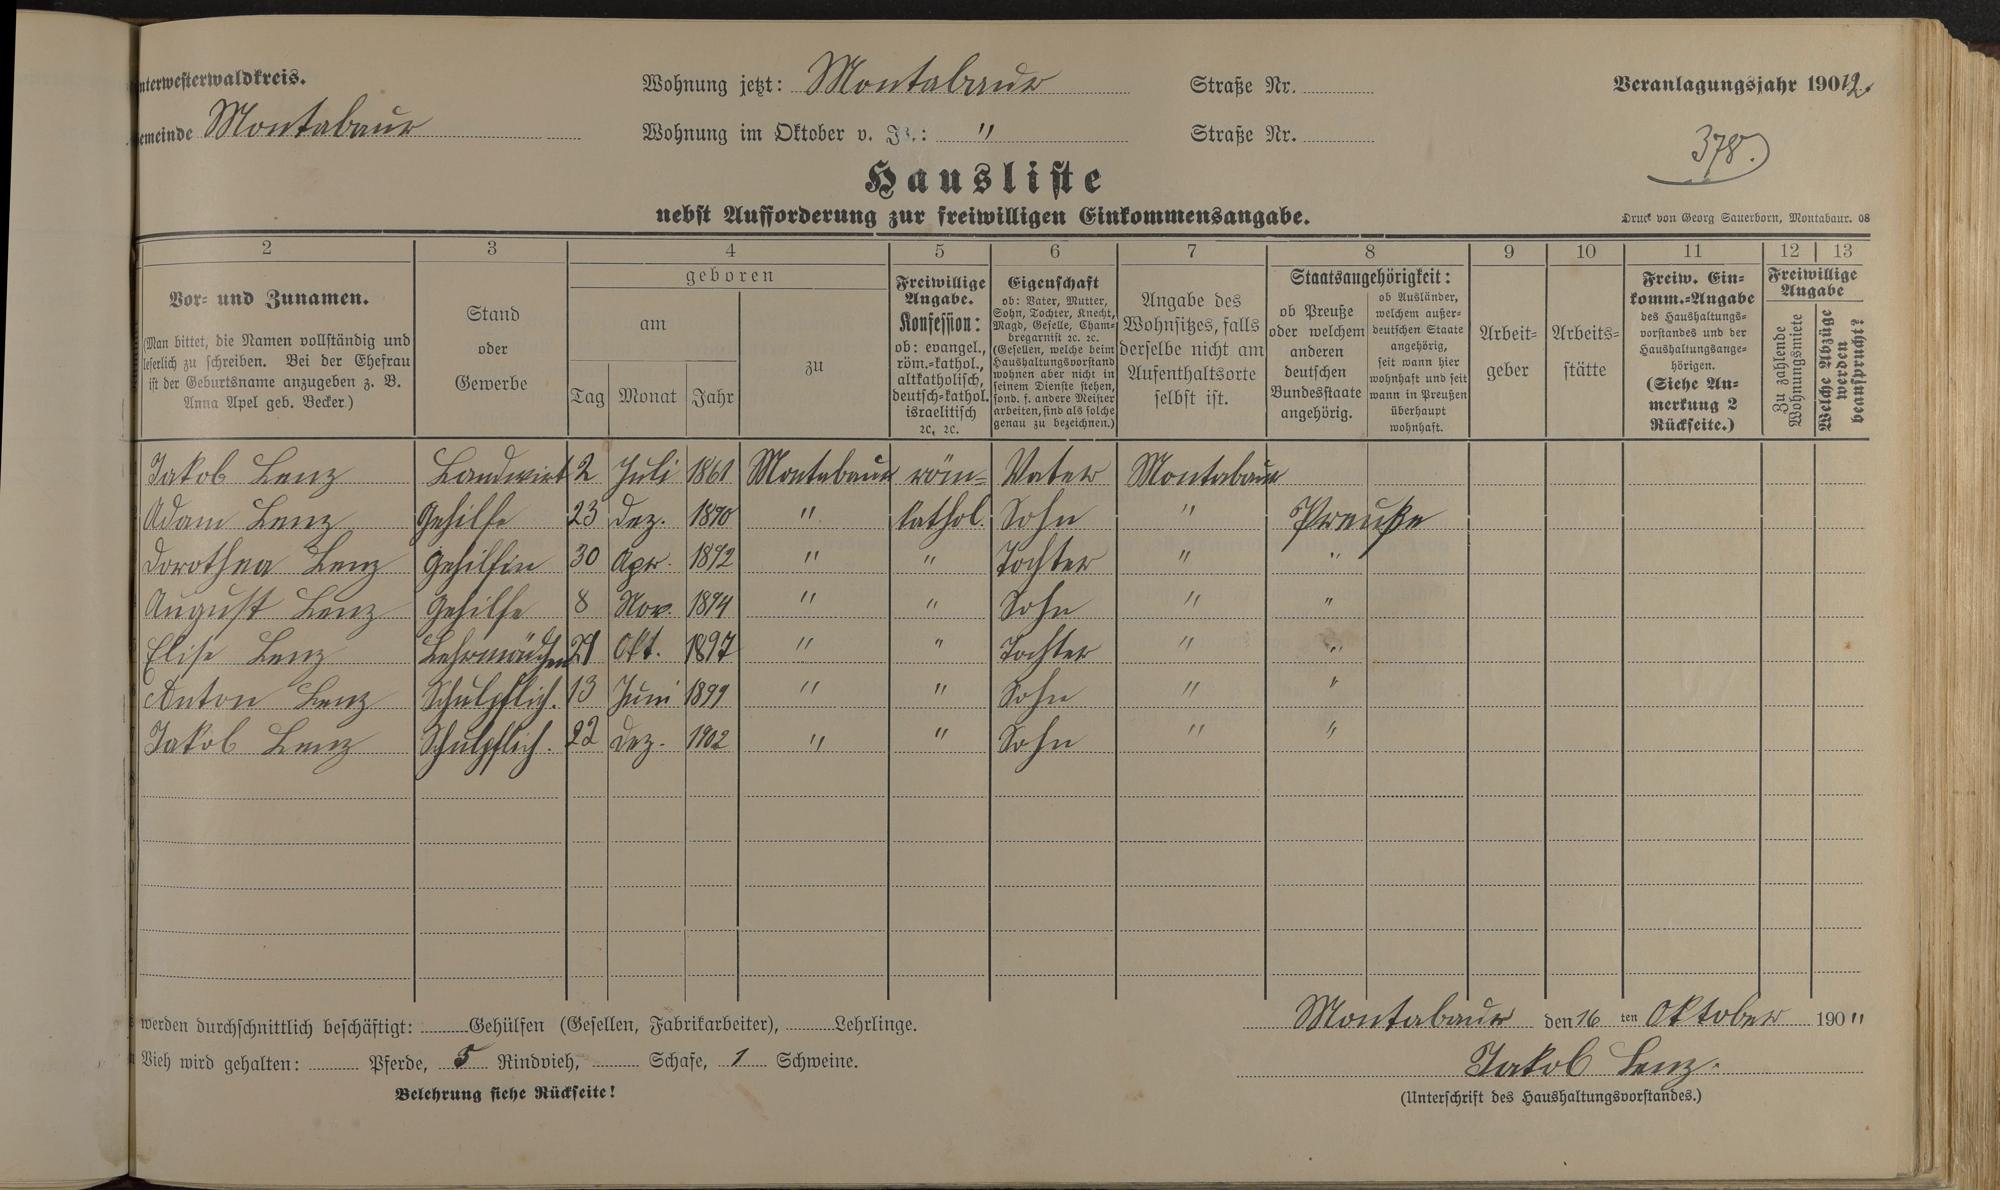 nterwesterwaldkreis.
emeinde Montabaur
Wohnung jetzt: Montabaur Straße Nr.
Wohnung im Oktober v. J.: " Straße Nr.
Veranlagungsjahr 1912.
378.
Hausliste
nebst Aufforderung zur freiwilligen Einkommensangabe.
Druck von Georg Sauerborn, Montabaur. 08
2 3 4 5 6 7 8 9 10 11 12 13
Vor- und Zunamen.
(Man bittet, die Namen vollständig und
leserlich zu schreiben. Bei der Ehefrau
ist der Geburtsname anzugeben z. B.
Anna Apel geb. Becker.)
Stand
oder
Gewerbe
geboren
am
Tag Monat Jahr
zu
Freiwillige
Angabe.
Konfession:
ob: evangel.,
röm.-kathol.,
altkatholisch,
deutsch-kathol.
israelitisch
ꝛc. ꝛc.
Eigenschaft
ob: Vater, Mutter,
Sohn, Tochter, Knecht,
Magd, Geselle, Cham-
bregarnist ꝛc. ꝛc.
(Gesellen, welche beim
Haushaltungsvorstand
wohnen aber nicht in
seinem Dienste stehen,
sond. f. andere Meister
arbeiten, sind als solche
genau zu bezeichnen.)
Angabe des
Wohnsitzes, falls
derselbe nicht am
Aufenthaltsorte
selbst ist.
Staatsangehörigkeit:
ob Preuße
oder welchem
anderen
deutschen
Bundesstaate
angehörig.
ob Ausländer,
welchem außer-
deutschen Staate
angehörig,
seit wann hier
wohnhaft und seit
wann in Preußen
überhaupt
wohnhaft.
Arbeit-
geber
Arbeits-
stätte
Freiw. Ein-
komm.-Angabe
des Haushaltungs-
vorstandes und der
Haushaltungsange-
hörigen.
(Siehe An-
merkung 2
Rückseite.)
Freiwillige
Angabe
Zu zahlende
Wohnungsmiete
Welche Abzüge
werden
gewünscht?
Jakob Lenz Landwirt 2 Juli 1861 Montabaur röm= Vater Montabaur
Adam Lenz Gehilfe 23 Dez. 1890 " kathol. Sohn " Preuße
Dorothea Lenz Gehilfin 30 Apr. 1892 " " Tochter " "
August Lenz Gehilfe 8 Nov. 1894 " " Sohn " "
Elise Lenz Lehrmädchen 29 Okt. 1897 " " Tochter " "
Anton Lenz Schulpflich. 13 Juni 1899 " " Sohn " "
Jakob Lenz Schulpflich. 22 Dez. 1902 " " Sohn " "
werden durchschnittlich beschäftigt: Gehülfen (Gesellen, Fabrikarbeiter), Lehrlinge.
Vieh wird gehalten: Pferde, 5 Rindvieh, Schafe, 1 Schweine.
Belehrung siehe Rückseite!
Montabaur den 16 ten Oktober 190 11
Jakob Lenz.
(Unterschrift des Haushaltungsvorstandes.)